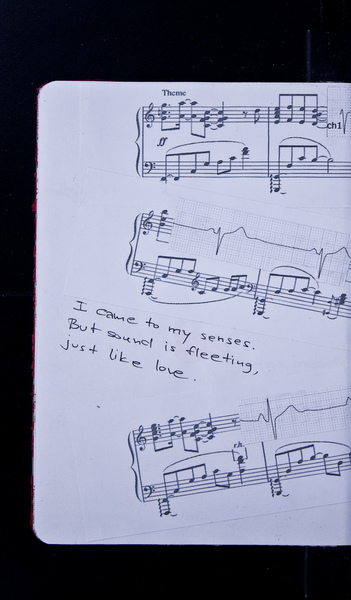 Theme
ff
ch1
I came to my senses.
But sound is fleeting,
just like love.
r.h.